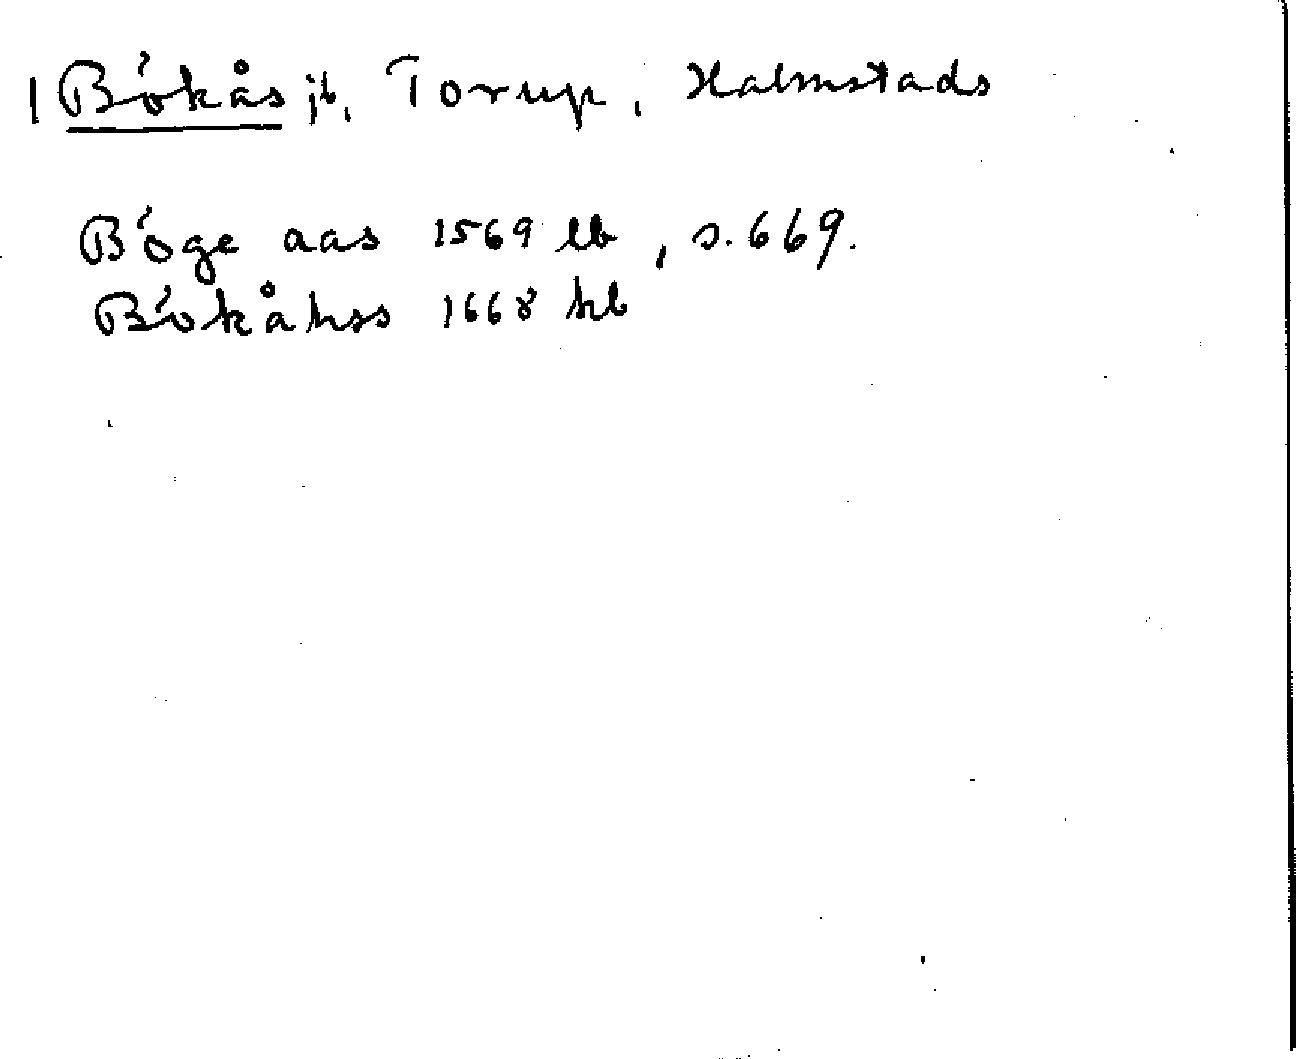 1 Bökås jb, Torup, Halmstads
Böge aas 1569 lb, s. 669.
Bökåhss 1668 hb